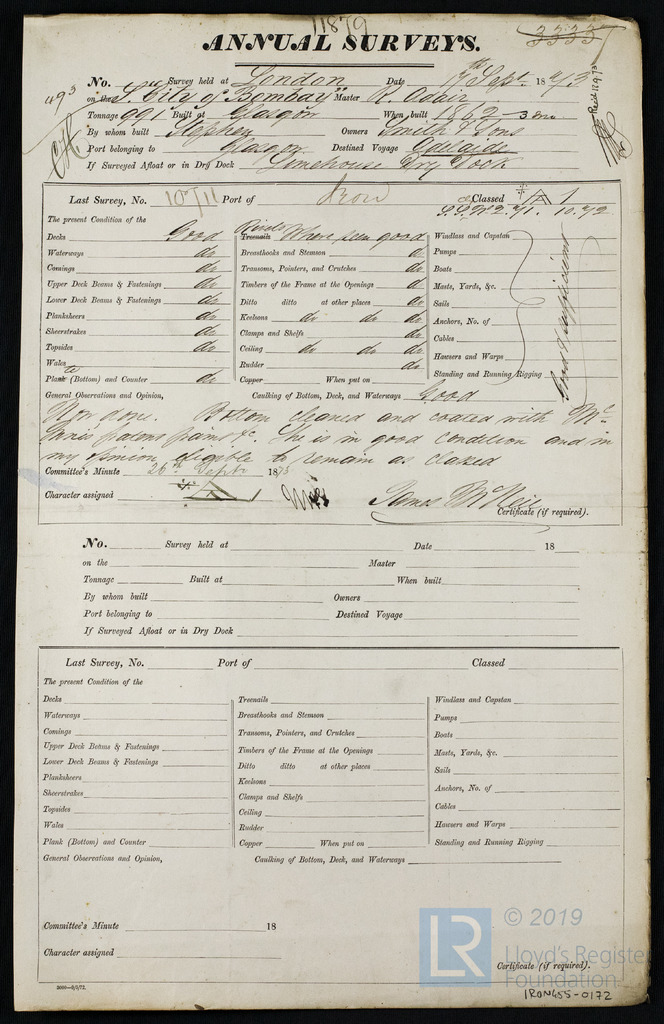 11879
3333
ANNUAL SURVEYS.
No. Survey held at London Date 17th Sept. 1873
on the S. "City of Bombay" Master R. Adair
Tonnage 991 Built at Glasgow When built 1862 - 3 mo
By whom built Stephen Owners Smith & Sons
Port belonging to Glasgow Destined Voyage Adelaide
If Surveyed Afloat or in Dry Dock Limehouse Dry Dock
Last Survey, No. 10711 Port of Iron Classed A 1
S.S. No 2. 10.72
The present Condition of the
Decks Good
Waterways do
Comings do
Upper Deck Beams & Fastenings do
Lower Deck Beams & Fastenings do
Planksheers do
Sheerstrakes do
Topsides do
Wales
Plank (Bottom) and Counter do
Rivets
Treenails Where seen good
Breasthooks and Stemson do
Transoms, Pointers, and Crutches do
Timbers of the Frame at the Openings d
Ditto ditto at other places do
Keelsons do do do
Clamps and Shelfs do
Ceiling do do do
Rudder do
Copper When put on
Windlass and Capstan
Pumps
Boats
Masts, Yards, &c.
Sails
Anchors, No. of
Cables
Hawsers and Warps
Standing and Running Rigging
Good & sufficient
General Observations and Opinion, Caulking of Bottom, Deck, and Waterways Good
Now done. Bottom cleaned and coated with Mc
Innis patent paint &c. She is in good condition and in
my opinion eligible to remain as classed
Committee's Minute 26th Sept 1873
Character assigned A
James McNeil
Certificate (if required).
No. Survey held at Date 18
on the Master
Tonnage Built at When built
By whom built Owners
Port belonging to Destined Voyage
If Surveyed Afloat or in Dry Dock
Last Survey, No. Port of Classed
The present Condition of the
Decks
Waterways
Comings
Upper Deck Beams & Fastenings
Lower Deck Beams & Fastenings
Planksheers
Sheerstrakes
Topsides
Wales
Plank (Bottom) and Counter
Treenails
Breasthooks and Stemson
Transoms, Pointers, and Crutches
Timbers of the Frame at the Openings
Ditto ditto at other places
Keelsons
Clamps and Shelfs
Ceiling
Rudder
Copper When put on
Windlass and Capstan
Pumps
Boats
Masts, Yards, &c.
Sails
Anchors, No. of
Cables
Hawsers and Warps
Standing and Running Rigging
General Observations and Opinion, Caulking of Bottom, Deck, and Waterways
Committee's Minute 18
Character assigned
Certificate (if required).
LR © 2019
Lloyd's Register
Foundation
IRON455-0172